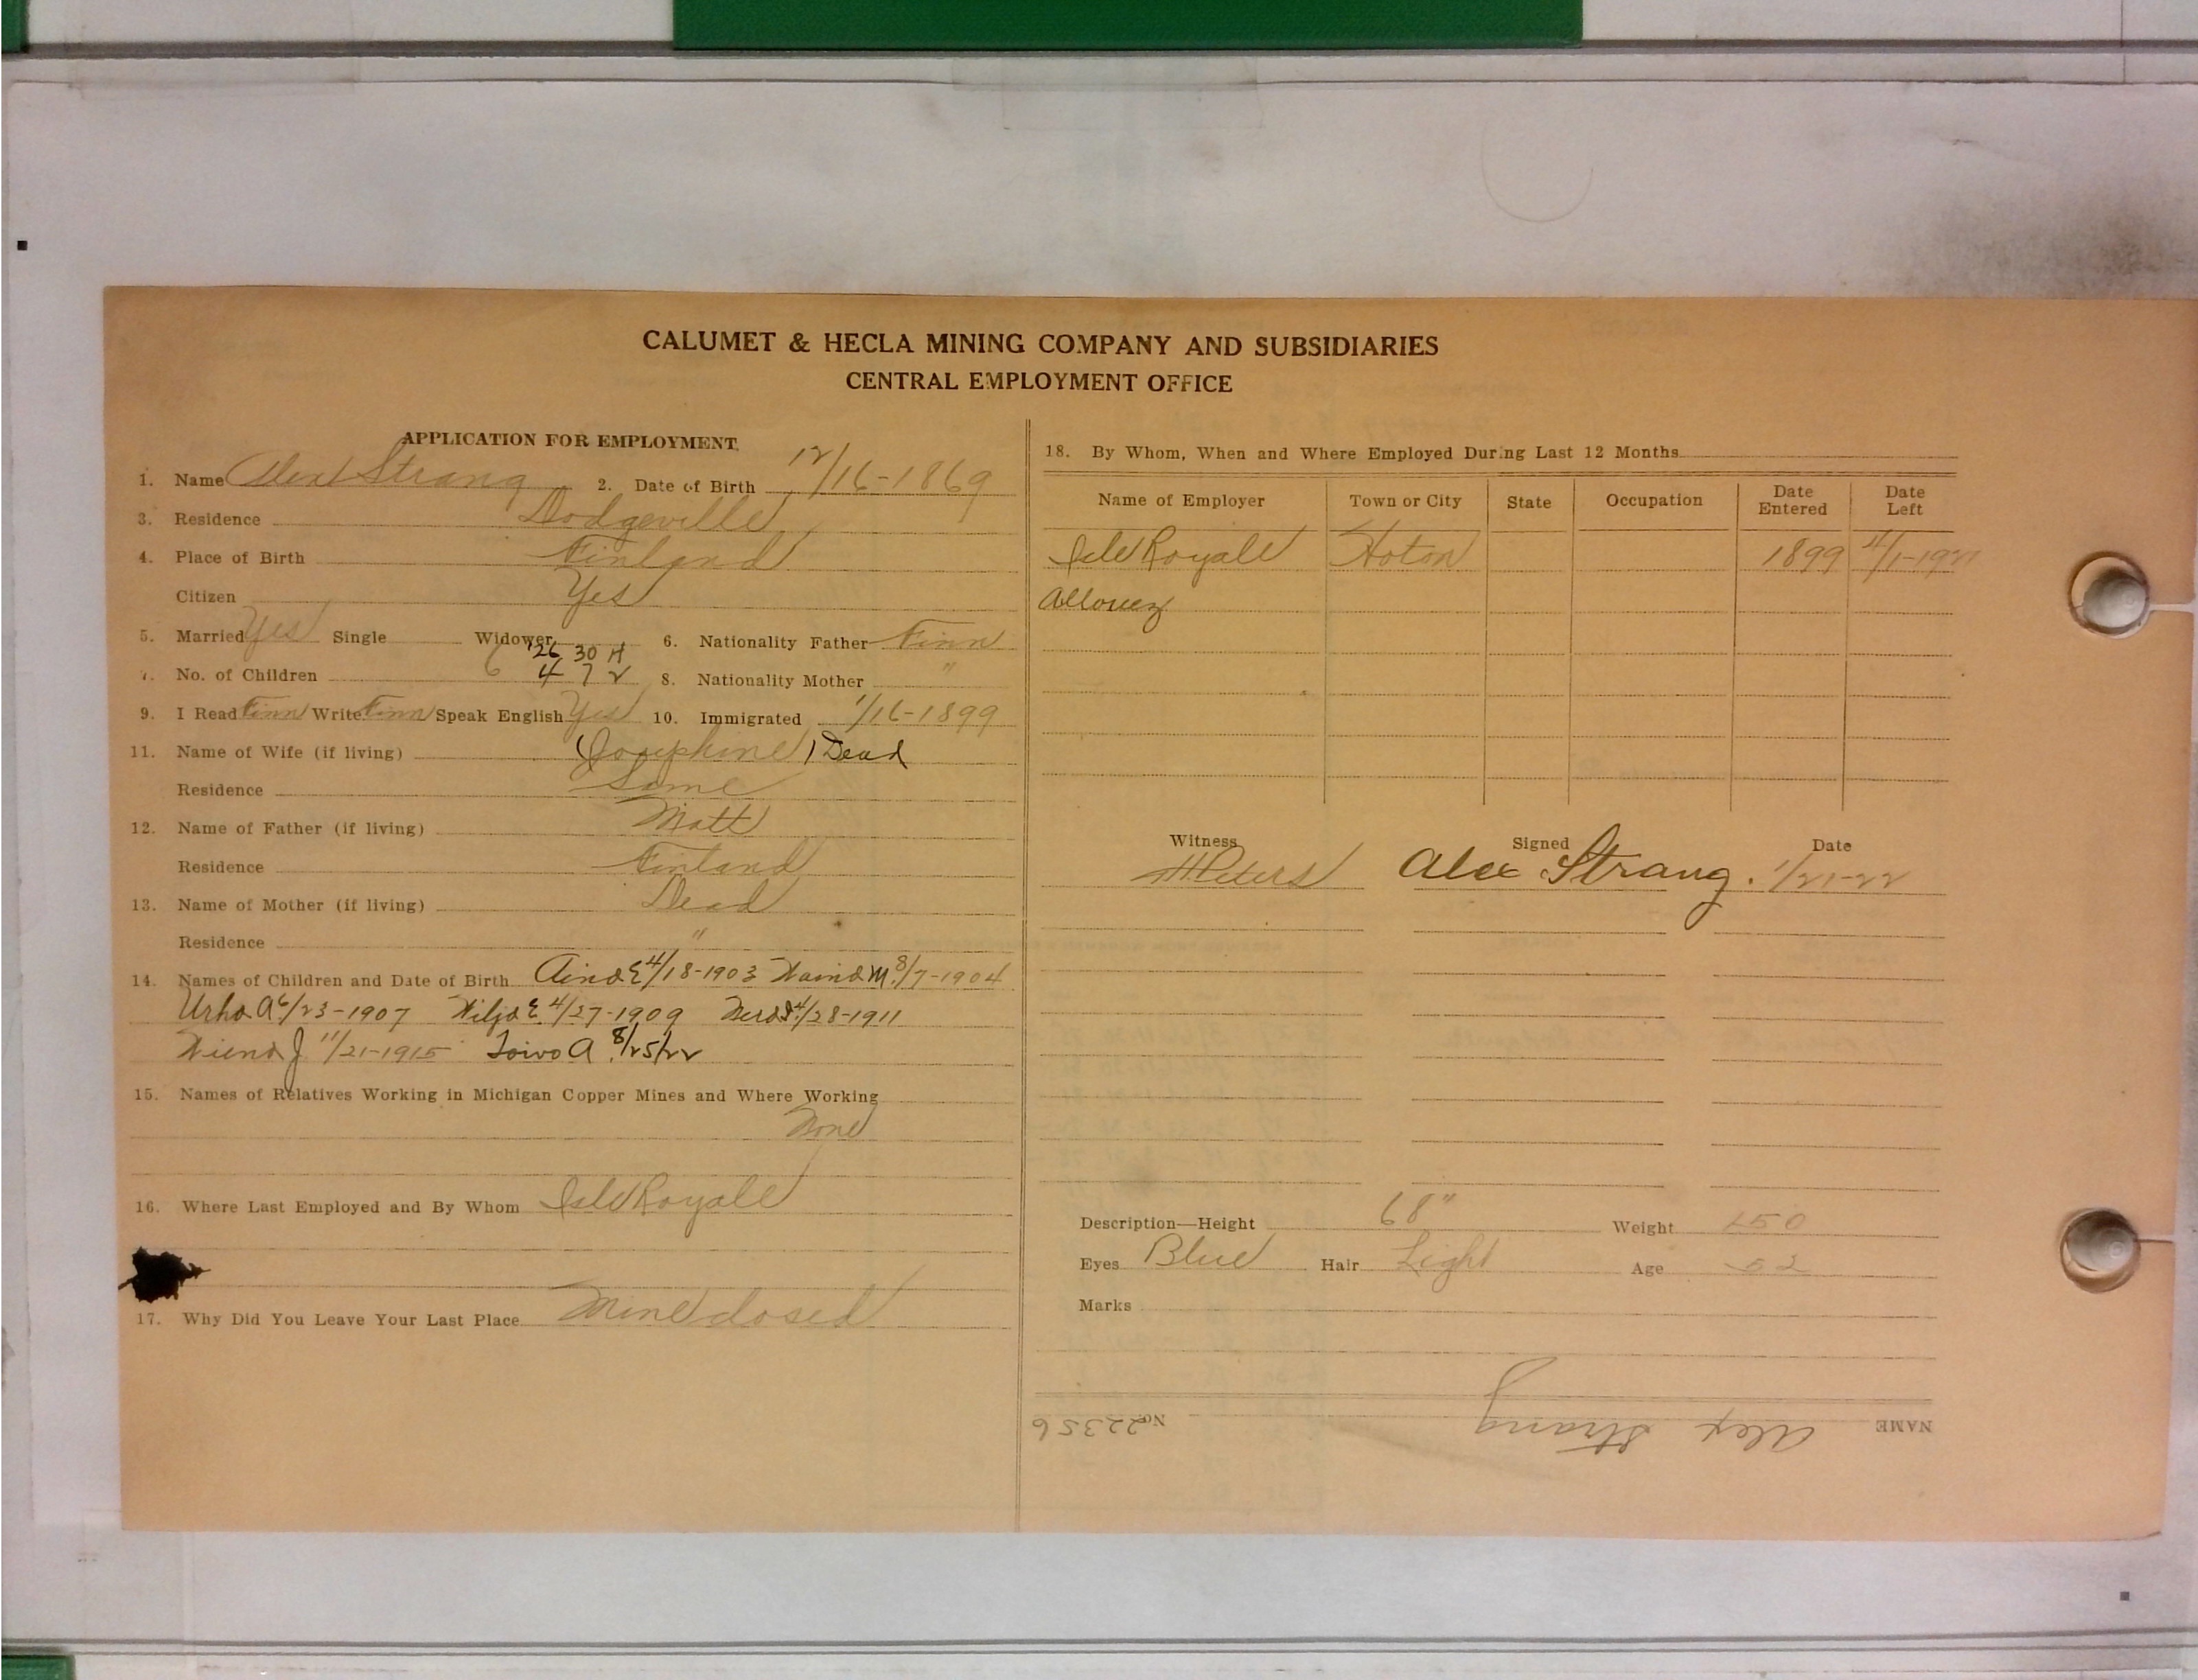 CALUMET & HECLA MINING COMPANY AND SUBSIDIARIES
CENTRAL EMPLOYMENT OFFICE
APPLICATION FOR EMPLOYMENT
1. Name Alex Strang 2. Date of Birth 12/16-1869
3. Residence Dodgeville
4. Place of Birth Finland
Citizen Yes
5. Married Yes Single Widower 6. Nationality Father Finn
'26 30 H
7. No. of Children 6 4 7 2 8. Nationality Mother "
9. I Read Finn Write Finn Speak English Yes 10. Immigrated 1/16-1899
11. Name of Wife (if living) (Josephine) Dead
Residence Same
12. Name of Father (if living) Matt
Residence Finland
13. Name of Mother (if living) Dead
Residence "
14. Names of Children and Date of Birth Aino E 4/18-1903 Waino M. 8/7-1904
Urho A 6/23-1907 Wiljo E. 4/27-1909 4/28-1911
J 11/21-1915 Toivo A. 8/25/22
15. Names of Relatives Working in Michigan Copper Mines and Where Working
None
16. Where Last Employed and By Whom Isle Royale
17. Why Did You Leave Your Last Place Mine closed
18. By Whom, When and Where Employed During Last 12 Months
Name of Employer Town or City State Occupation Date Entered Date Left
Isle Royale Hoton 1899 4/1-1921
Allouez
Witness Signed Date
Peters Alex Strang. 1/21-22
Description—Height 68" Weight 150
Eyes Blue Hair Light Age 52
Marks
NAME Alex Strang No. 22356